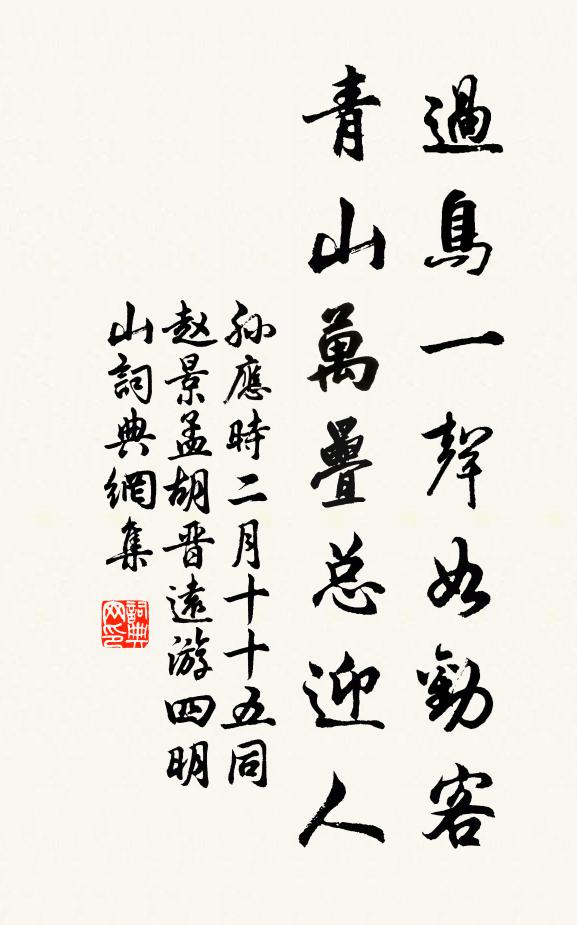 過鳥一聲如勸客
青山萬疊总迎人
孙應時二月十十五同
赵景孟胡晋遠游四明
山詞典網集
詞典网印